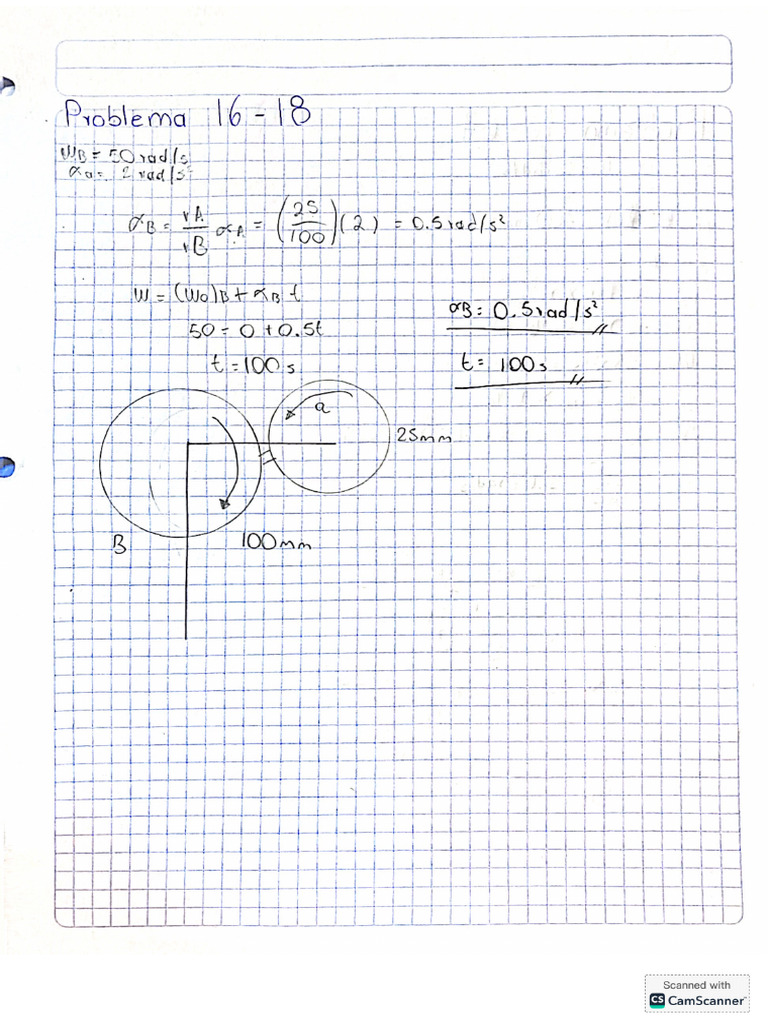 Problema 16-18
WB = 50 rad/s
αa = 2 rad/s²
αB = rA/rB αA = (25/100)(2) = 0.5 rad/s²
W = (W0)B + αB t
50 = 0 + 0.5t
t = 100 s
αB = 0.5 rad/s²
t = 100 s
a
25mm
B
100mm
Scanned with
CS CamScanner